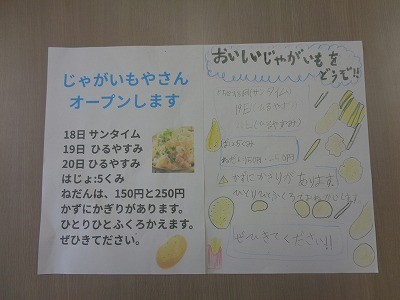 じゃがいもやさん
オープンします
18日 サンタイム
19日 ひるやすみ
20日 ひるやすみ
はじょ:5くみ
ねだんは、150円と250円
かずにかぎりがあります。
ひとりひとふくろかえます。
ぜひきてださい。
おいしいじゃがいもを
どうぞ!!
18日(サンタイム)
19日(ひるやすみ)
20日(ひるやすみ)
5くみ
かずにかぎりがあります
ひとりひとふくろ
ぜひきてください!!